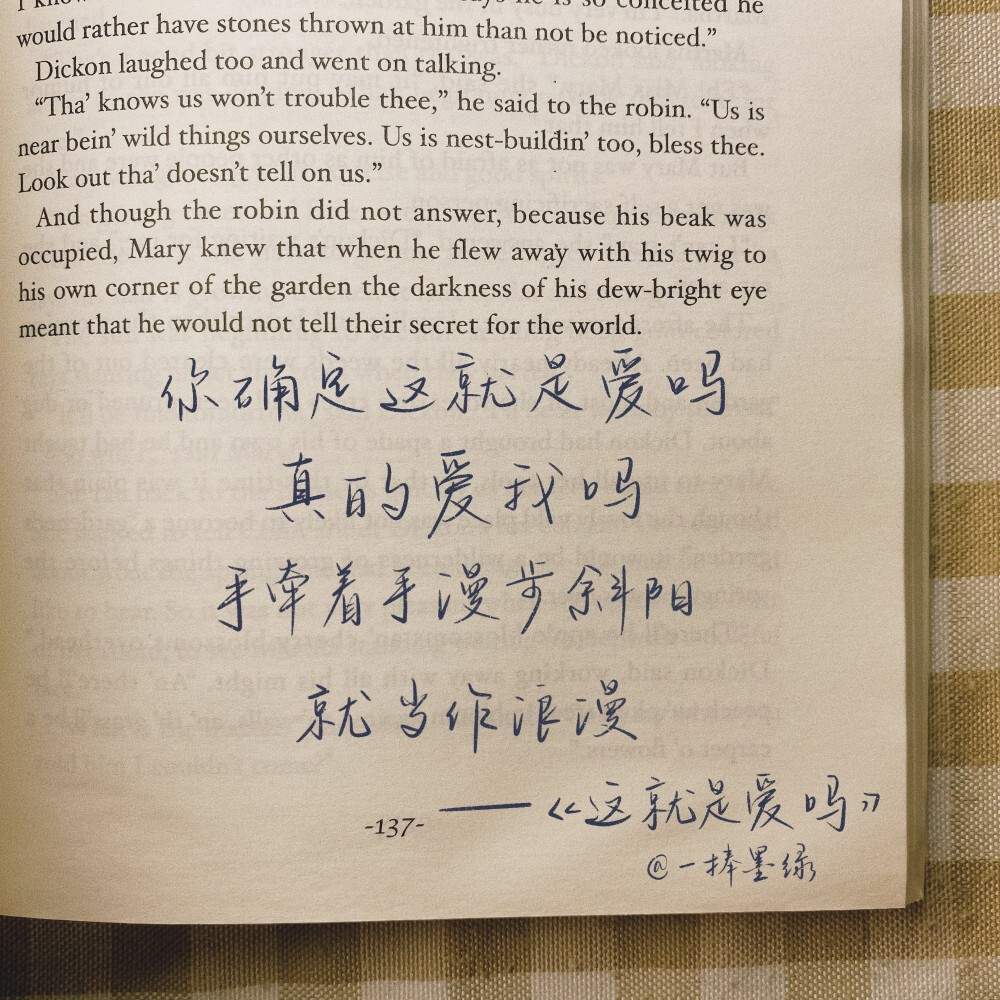 would rather have stones thrown at him than not be noticed.”
Dickon laughed too and went on talking.
“Tha’ knows us won’t trouble thee,” he said to the robin. “Us is
near bein’ wild things ourselves. Us is nest-buildin’ too, bless thee.
Look out tha’ doesn’t tell on us.”
And though the robin did not answer, because his beak was
occupied, Mary knew that when he flew away with his twig to
his own corner of the garden the darkness of his dew-bright eye
meant that he would not tell their secret for the world.
你确定这就是爱吗
真的爱我吗
手牵着手漫步斜阳
就当作浪漫
——《这就是爱吗》
-137-
@一捧墨绿